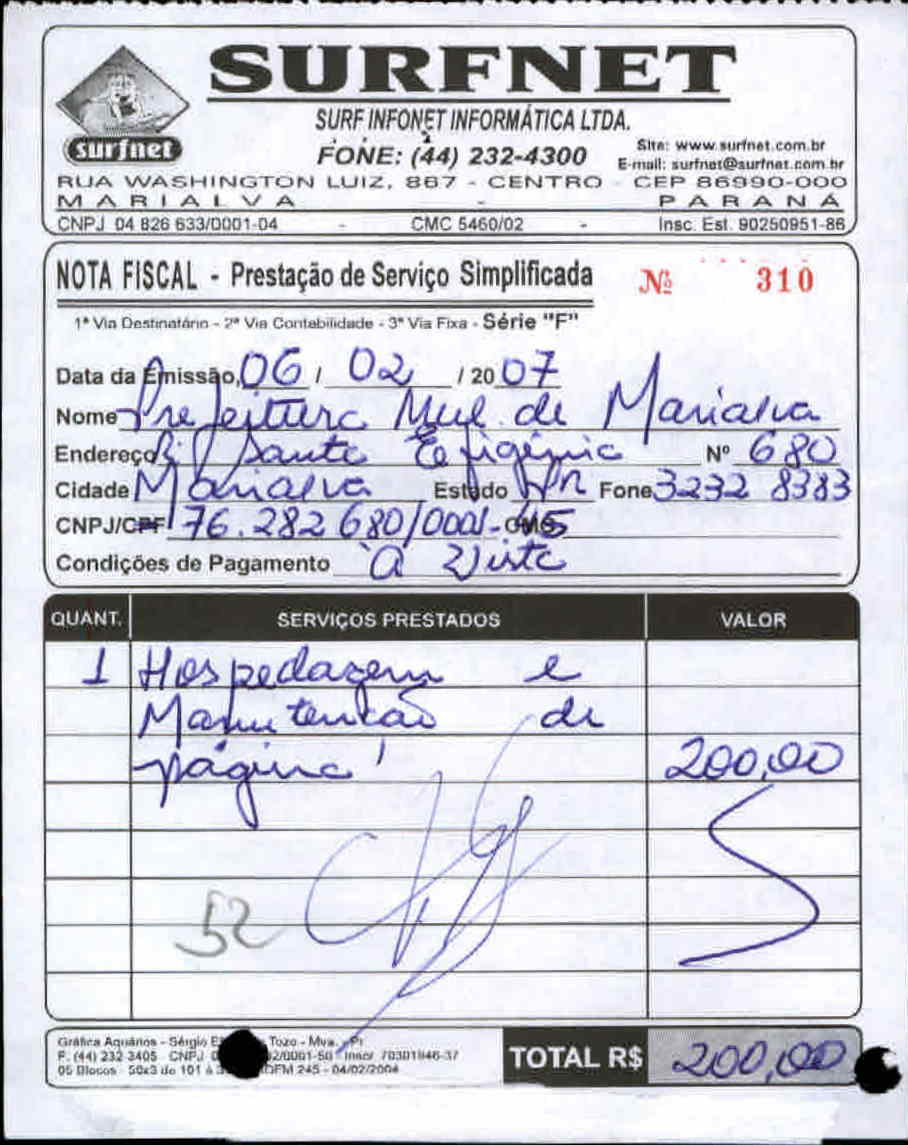 SURFNET
SURF INFONET INFORMÁTICA LTDA.
surfnet
FONE: (44) 232-4300
Site: www.surfnet.com.br
E-mail: surfnet@surfnet.com.br
RUA WASHINGTON LUIZ, 867 - CENTRO - CEP 86990-000
MARIALVA - PARANÁ
CNPJ 04 826 633/0001-04 - CMC 5460/02 - Insc. Est. 90250951-86
NOTA FISCAL - Prestação de Serviço Simplificada Nº 310
1ª Via Destinatário - 2ª Via Contabilidade - 3ª Via Fixa - Série "F"
Data da Emissão, 06 / 02 / 2007
Nome Prefeitura Mul. de Marialva
Endereço R; Santa Efigênia Nº 680
Cidade Marialva Estado PR Fone 3232 8383
CNPJ/CPF 76.282 680/0001-45
Condições de Pagamento À Vista
QUANT. SERVIÇOS PRESTADOS VALOR
1 Hospedagem e
Manutenção de
página 200,00
52
Gráfica Aquários - Sérgio Tozo - Mva. - Pr
F. (44) 232 3405 - CNPJ 2/0001-50 - Inscr 70301946-37
05 Blocos - 50x3 de 101 à 245 - 04/02/2004
TOTAL R$ 200,00